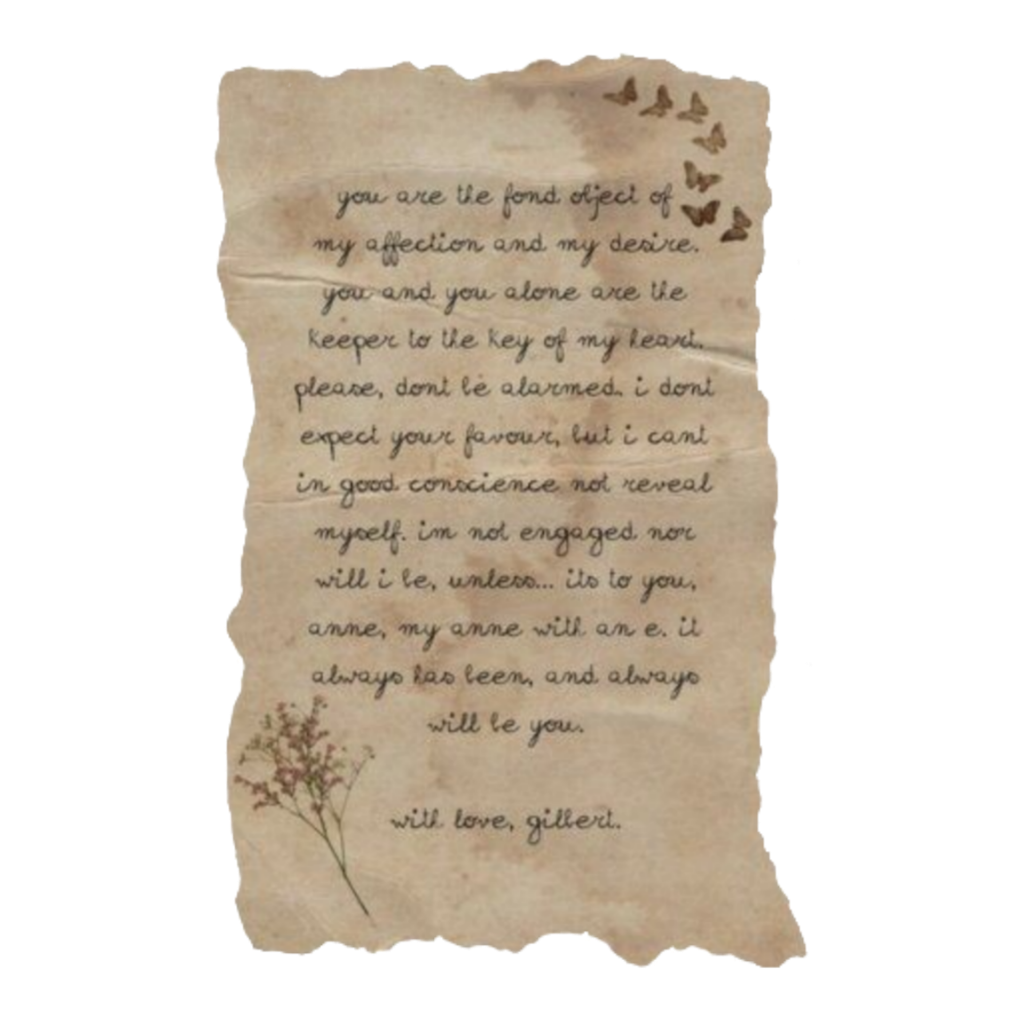 you are the fond object of
my affection and my desire.
you and you alone are the
keeper to the key of my heart.
please, dont be alarmed. i dont
expect your favour, but i cant
in good conscience not reveal
myself. im not engaged nor
will i be, unless... its to you,
anne, my anne with an e. it
always has been, and always
will be you.
with love, gilbert.